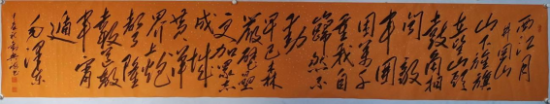 西江月
井岡山
山下旌旗
在望山頭
鼓角相
聞敵
軍圍
困萬千
重我自
巋然不
動
早已森
嚴壁壘
更加衆志
成城
黄洋
界上炮
聲隆
報道敵
軍宵
遁
毛澤東